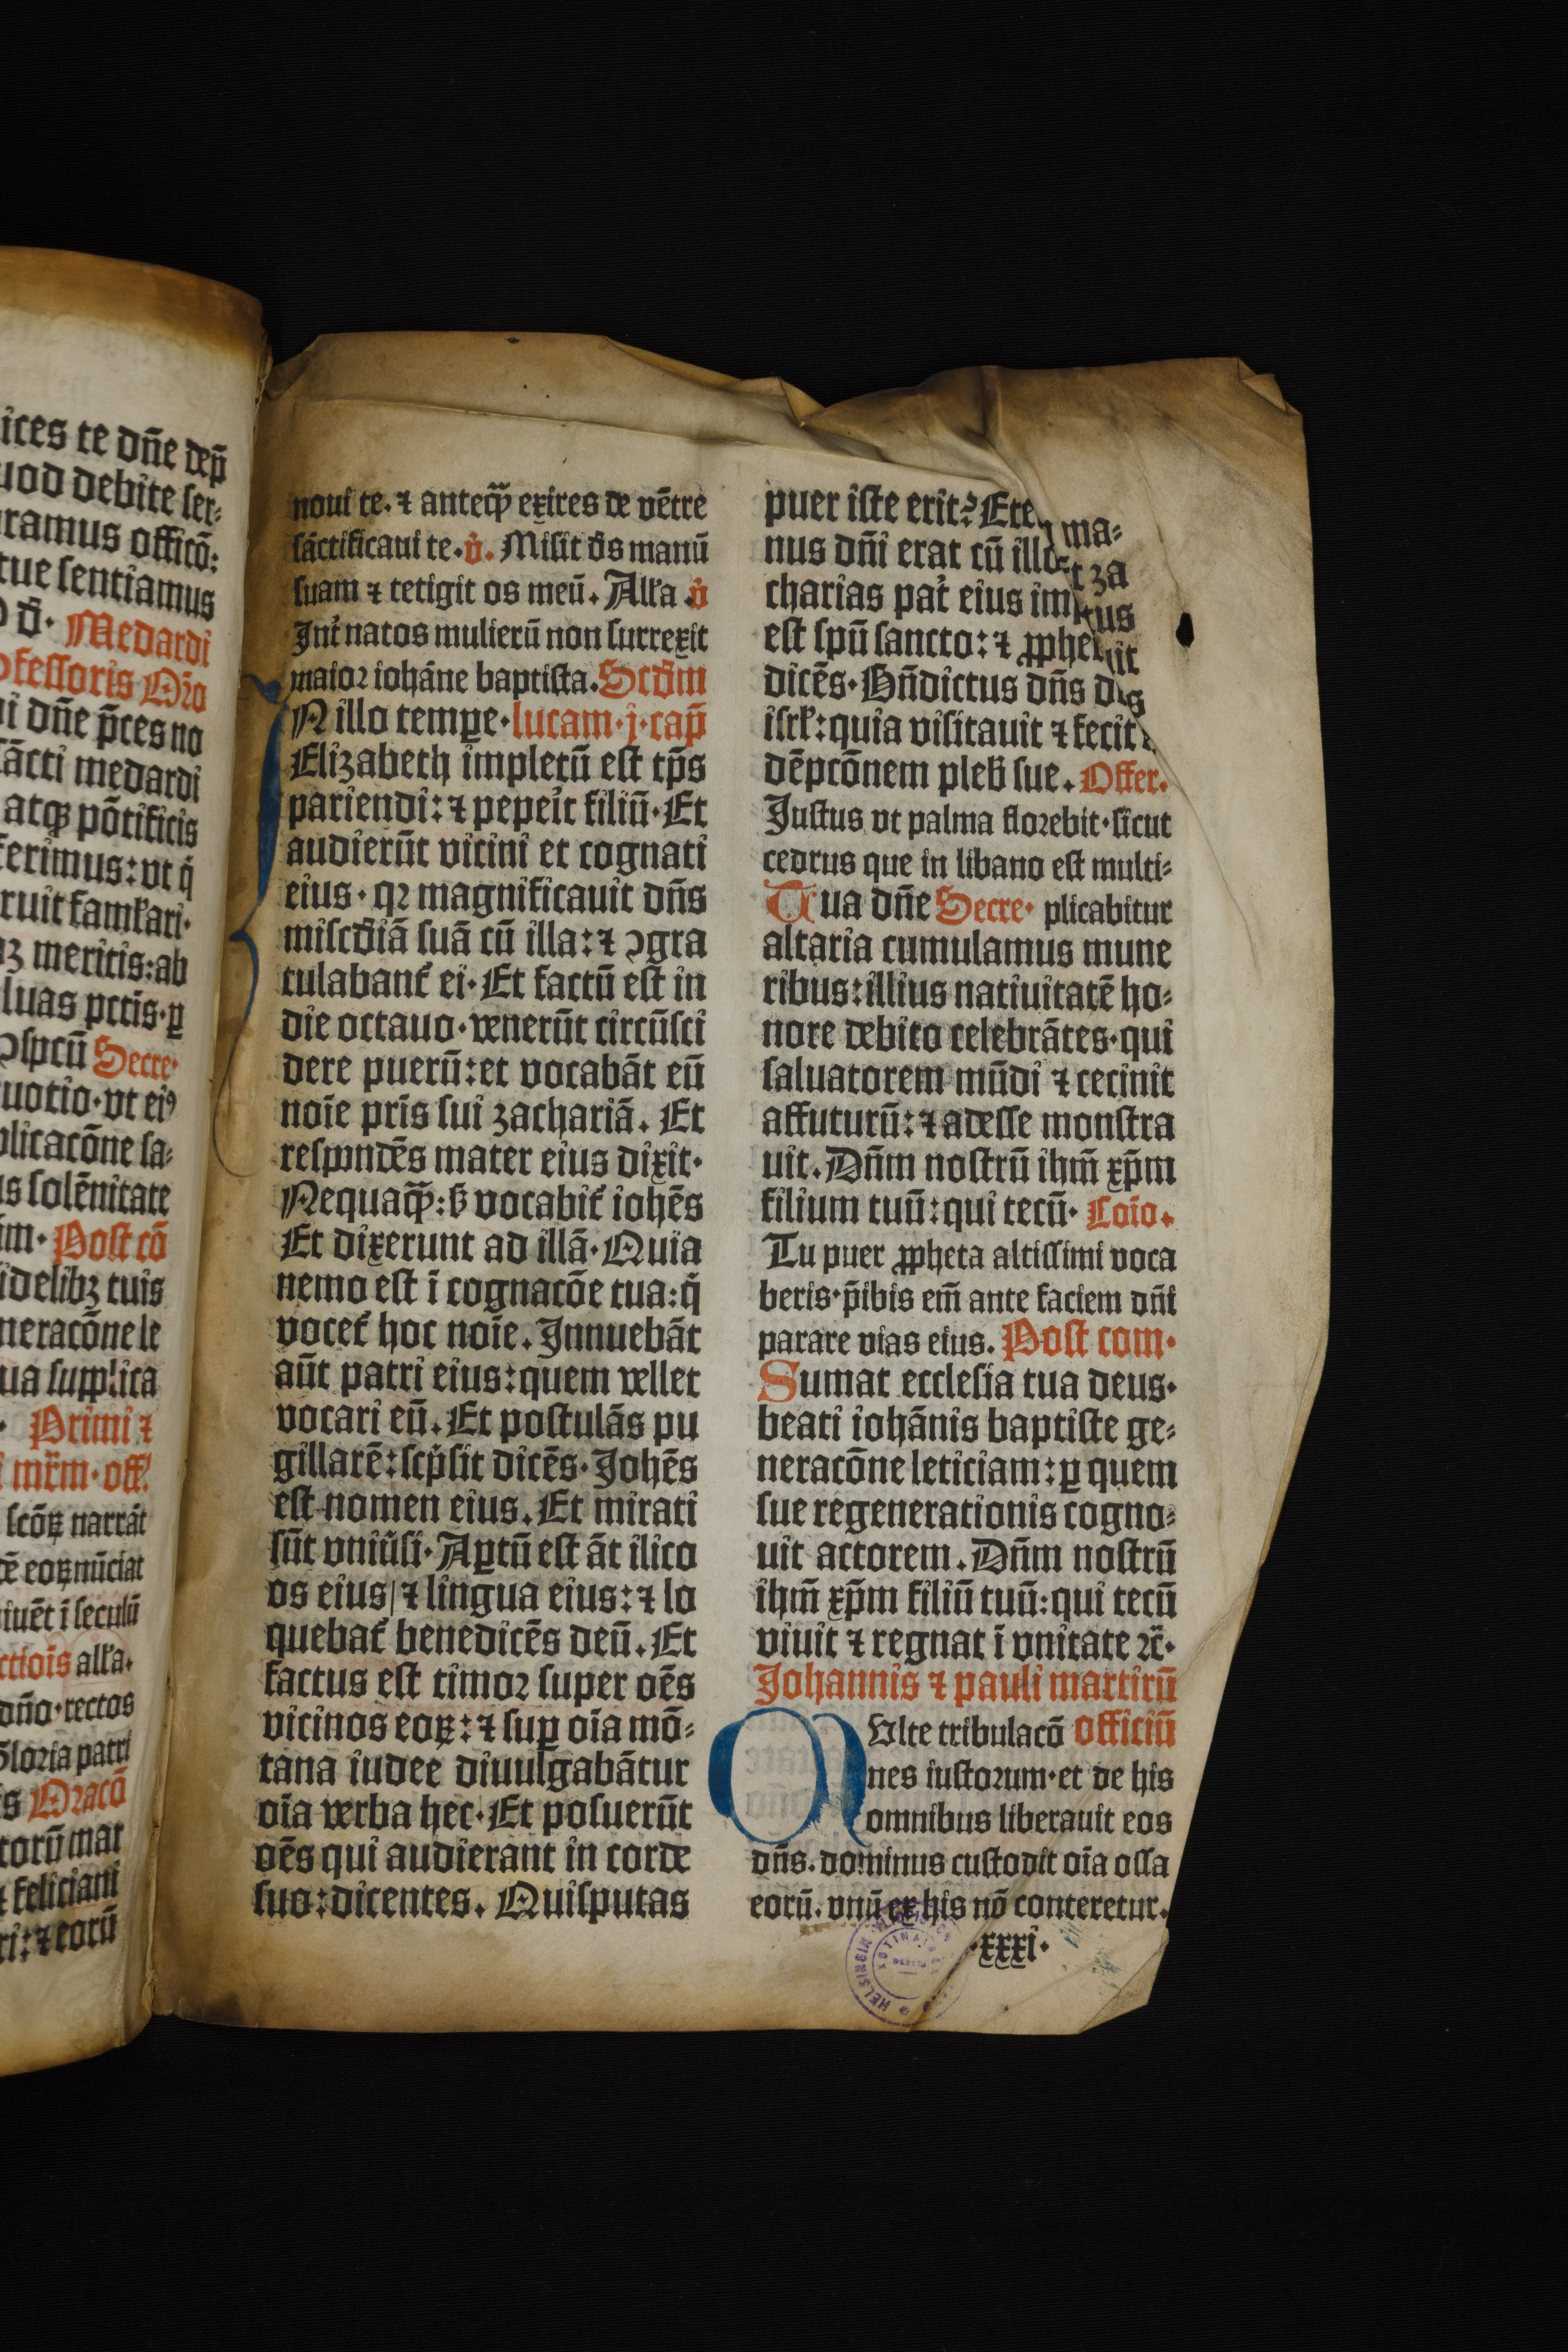 ices te dn̄e dep̄
uod debite ser⸗
ramus officō:
tue sentiamus
Medardi
ofessoris Or̄o
i dn̄e p̄ces no
sācti medardi
atqꝫ pōtificis
ferimus: vt q̄
ruit famľari·
meritis: ab
luas pctīs· ꝑ
ospcū Secre·
uotio· vt eiꝰ
plicacōne sa⸗
us solēnitate
im· Post cō
idelibꝫ tuis
neracōne le
ua supplica
Primi ⁊
mr̄m· off
scōꝝ narrāt
eoꝝ nūciat
iuēt ī seculū
ctiois alľa.
dn̄o· rectos
Gloria patri
s Oracō
torū mar
feliciani
ri: ⁊ eorū
noui te. ⁊ anteqꝫ̄ exires de vētre
sāctificaui te. v̄. Misit de᷒s manū
suam ⁊ tetigit os meū. Alľa. v̄
Int̄ natos mulierū non surrexit
maior iohāne baptista. Scd̄m
N illo tempꝑe· lucam· j· cap̄
Elizabeth impletū est tp̄s
pariendi: ⁊ pepeīt filiū· Et
audierūt vicini et cognati
eius· qꝛ magnificauit dn̄s
misc̄diā suā cū illa: ⁊ ↄgra
tulabant̄ ei· Et factū est in
die octauo· venerūt circūsci
dere puerū: et vocabāt eū
noīe pr̄is sui zachariā. Et
respondēs mater eius dixit·
Nequaqꝫ̄: s̄ vocabit̄ iohēs
Et dixerunt ad illā· Quia
nemo est ī cognacōe tua: q̄
vocet̄ hoc noīe. Innuebāt
aūt patri eius: quem vellet
vocari eū. Et postulās pu
gillarē: scp̄sit dicēs· Johēs
est nomen eius. Et mirati
sūt vniūsi· Aꝑtū est āt ilico
os eius/ ⁊ lingua eius: ⁊ lo
quebat̄ benedicēs deū. Et
factus est timor super oēs
vicinos eoꝝ: ⁊ suꝑ oīa mō⸗
tana iudee diuulgabātur
oīa verba hec· Et posuerūt
oēs qui audierant in corde
suo: dicentes. Quisputas
puer iste erit? Ete ma⸗
nus dn̄i erat cū illo t za
charias pat̄ eius im tus
est spū sancto: ⁊ ꝓphe it
dicēs· Bn̄dictus dn̄s d s
isrľ: quia visitauit ⁊ fecit
dēpcōnem pleb̄ sue. Offer.
Justus vt palma florebit· sicut
cedrus que in libano est multi⸗
Tua dn̄e Secre· plicabitur
altaria cumulamus mune
ribus: illius natiuitatē ho⸗
nore debito celebrātes· qui
saluatorem mūdi ⁊ cecinit
affuturū: ⁊ adesse monstra
uit. Dn̄m nostrū ihm̄ xp̄m
filium tuū: qui tecū· Coīo.
Tu puer ꝓpheta altissimi voca
beris· p̄ibis em̄ ante faciem dn̄i
parare vias eius. Post com·
Sumat ecclesia tua deus·
beati iohānis baptiste ge⸗
neracōne leticiam: ꝑ quem
sue regenerationis cogno⸗
uit actorem. Dn̄m nostrū
ihm̄ xp̄m filiū tuū: qui tecū
viuit ⁊ regnat ī vnitate ⁊c̄·
Johannis ⁊ pauli martirū
MVlte tribulacō officiū
nes iustorum· et de his
omnibus liberauit eos
dn̄s. dominus custodit oīa ossa
eorū. vnū ex his nō conteretur.
·xxxi·